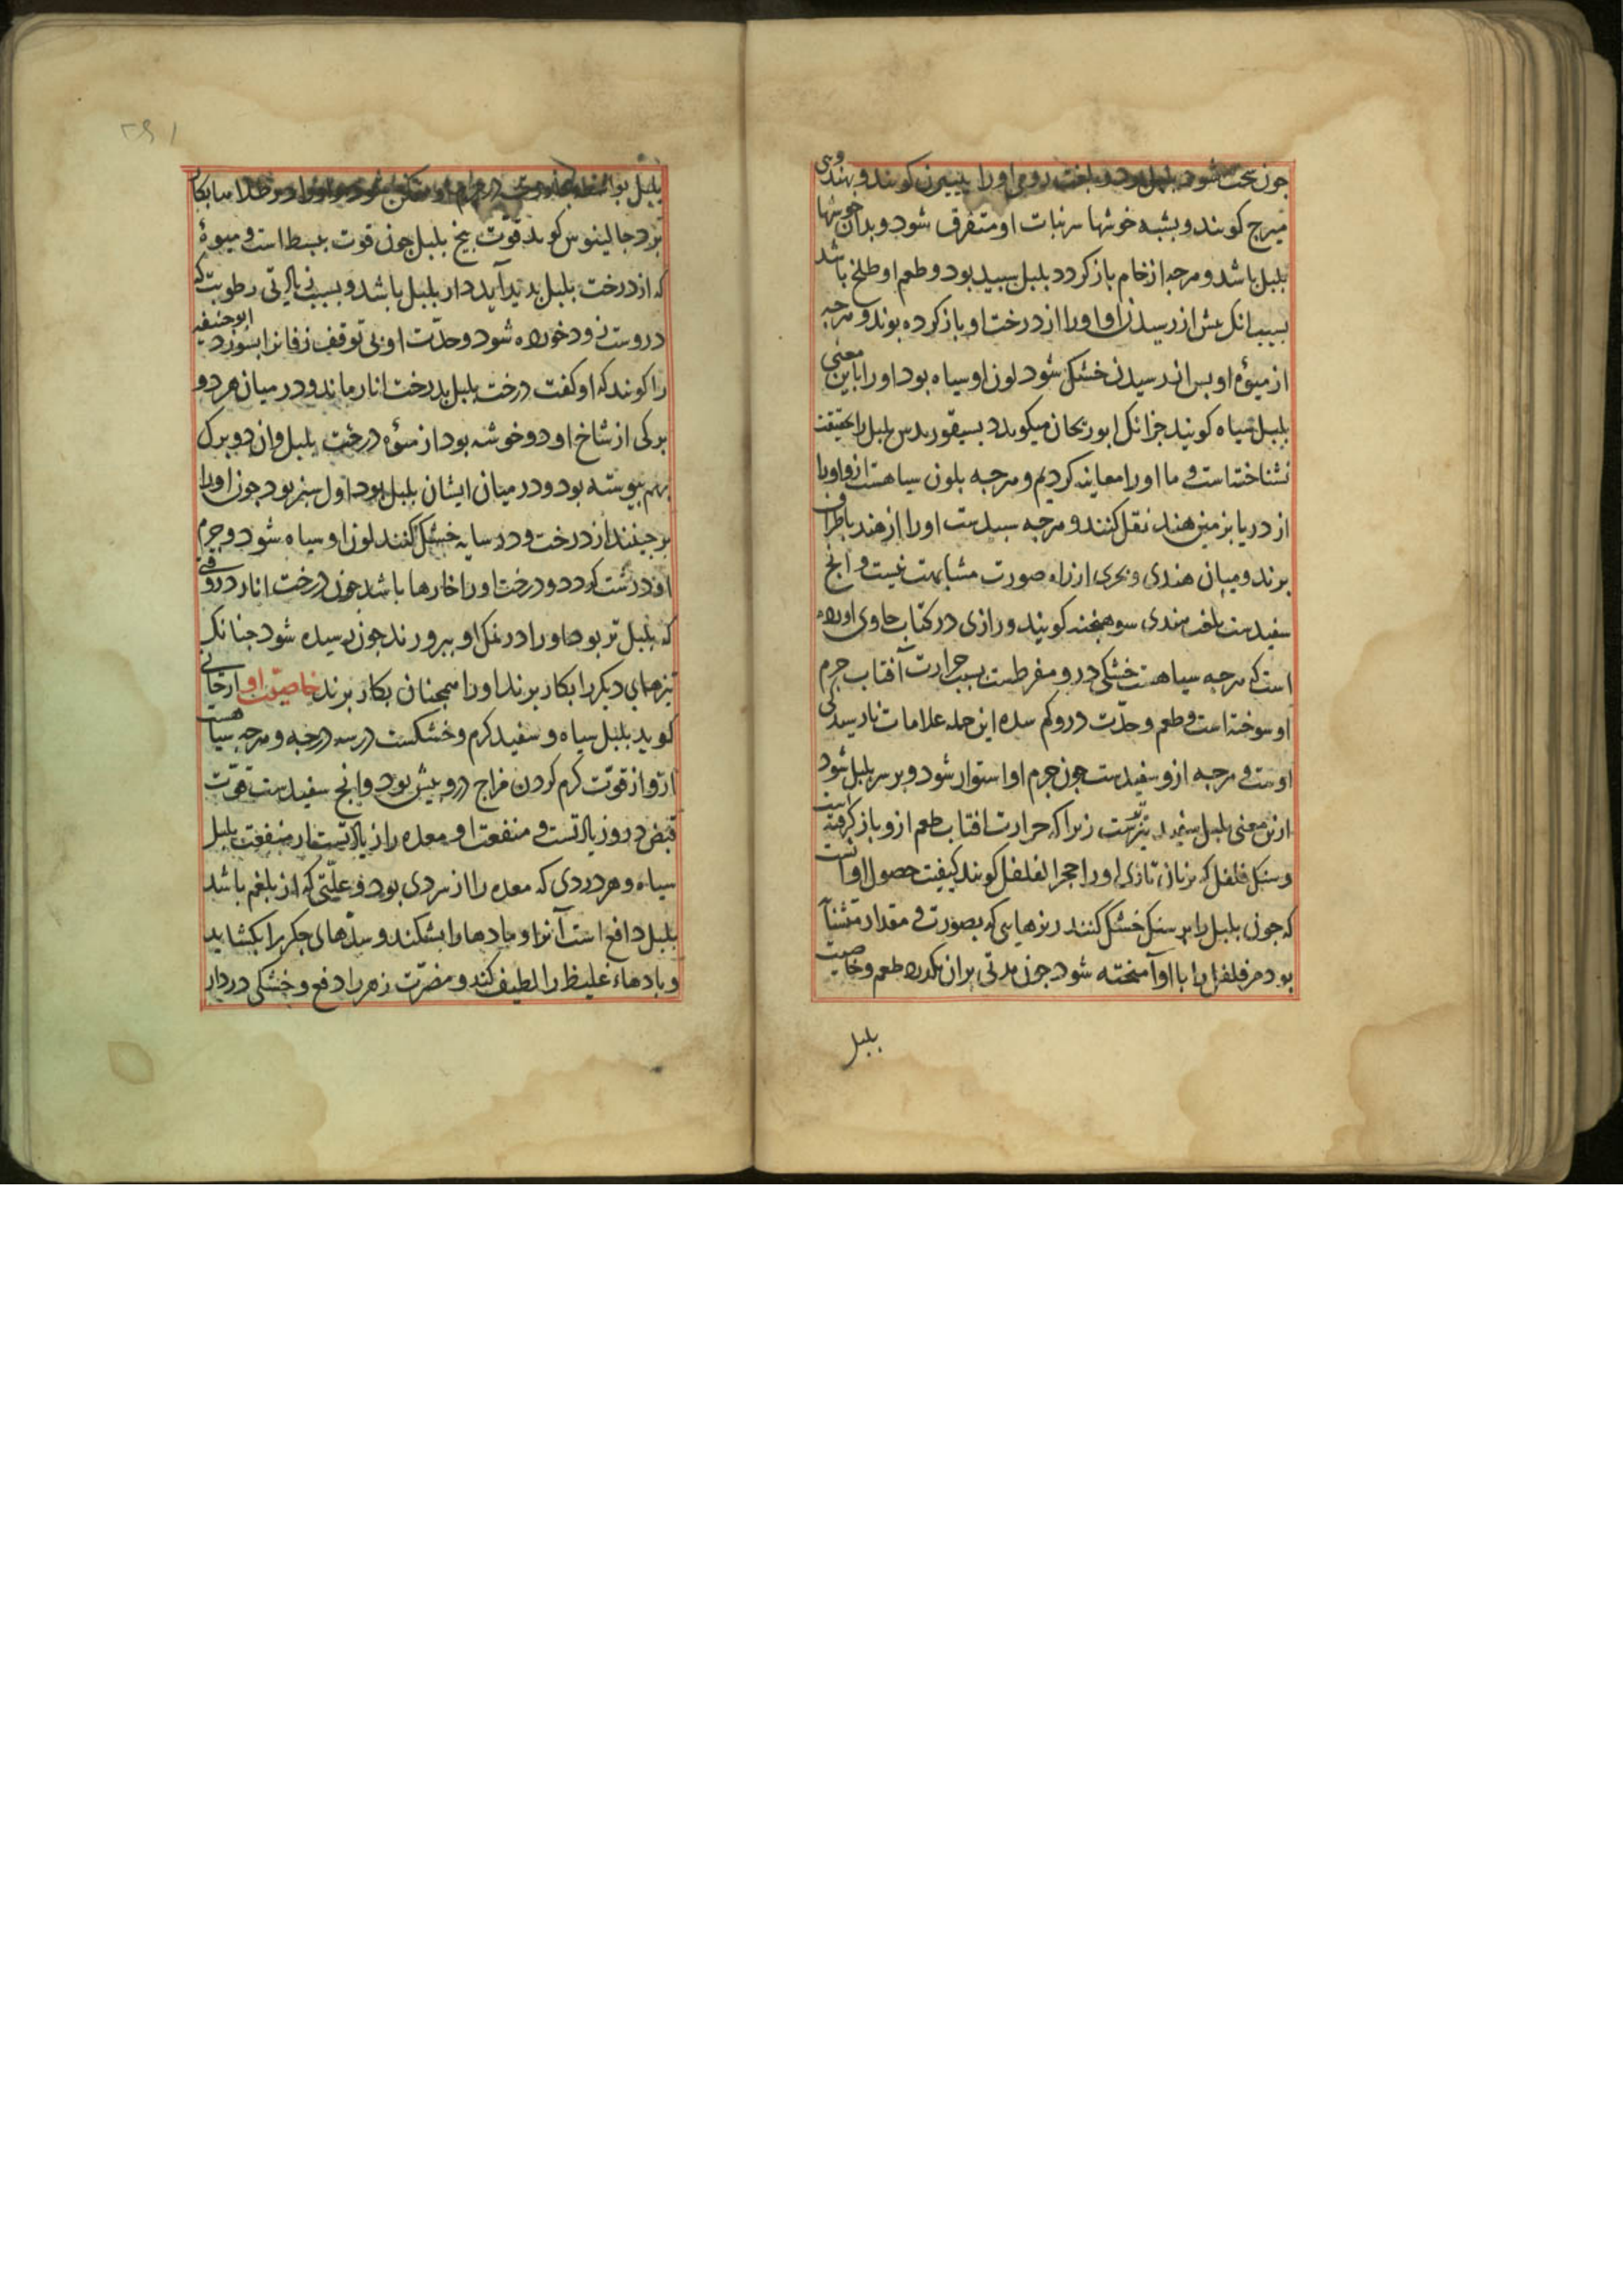 جون سخت شود بلبل کردد و بلغت رومی اورا پیپرن کویند و بهندوی
میرج کویند و بشبه خوشها بر نبات او متفرق شود و بدان خوشها
بلبل باشد و هرجه از خام باز کردد بلبل سبید بود و طعم او طلخ باشد
بسبب انک پیش از رسیدن او اورا از درخت او باز کرده بوند و هرجه
از میوه او پس از رسیدن خشک شود لون او سیاه بود اورا باین معنی
بلبل سیاه کویند جز انک ابوریحان میکوید بلبل را بحقیقت
نشناخته است و ما اورا معاینه کردیم و هرجه بلون سیاهست ازو اورا
از دریا بزمین هند نقل کنند و هرجه سبیدست اورا از هند باطراف
برند و میان هندی و بحری از راه صورت مشابهت نیست و انج
سفیدست بلغت هندی کویند و رازی در کتاب حاوی آورده
است که هرجه سیاهست خشکی درو مفرطست بسبب حرارت آفتاب جرم
او سوخته است و طعم و حدّت درو کم شده این جمله علامات نارسیدکی
اوست و هرجه ازو سفیدست جون جرم او استوار شود و بر سر بلبل شود
ازین معنی بلبل سفید تیزترست زیرا که حرارت افتاب طعم ازو باز کرفته است
و سنک فلفل که بزبان تازی اورا حجر الفلفل کویند کیفیت حصول او آنست
که جون بلبل را بر سنک خشک کنند ریزهایی که بصورت و مقدار
بود مر فلفل را با او آمیخته شود جون مدتی بران بکذرد طعم و خاصیت
بلبل
۲۹۱
بلبل بواسطه در جرم او متمکن شود و اورا در طلاها بکار
برد جالینوس کوید قوّت بیخ بلبل جون قوت بسبط است و میوۀ
که از درخت بلبل بدید آید دار بلبل باشد و بسبب زیادتی رطوبت که
دروست زود خورده شود و حدّت او بی توقف زفانرا بسوزد ابو حنیفه
را کویند که او کفت درخت بلبل بدرخت انار ماند و در میان هر دو
برکی از شاخ او دو خوشه بود از میوۀ درخت بلبل و ان دو برک
بهم پیوسته بود و در میان ایشان بلبل بود اول سبز بود جون اورا
برجینند از درخت و در سایه خشک کنند لون او سیاه شود و جرم
او درشت کردد و درخت اورا خارها باشد جون درخت انار در وقتی
که بلبل تر بود اورا در نمک او بپرورند جون رسیده شود جنانک
تیزهای دیکر را بکار برند اورا همجنان بکار برند خاصیّت او ارجانی
کوید بلبل سیاه و سفید کرم و خشکست در سه درجه و هرجه سیاهست
ازو از قوّت کرم کردن مزاج درو بیش بود و انج سفیدست قوّت
قبض درو زیادتست و منفعت او معده را زیادتست از منفعت بلبل
سیاه و هر دردی که معده را از سردی بود و علّتی که از بلغم باشد
بلبل دافع است آنرا و بادها را بشکند و سدّهای جکر را بکشاید
و بادهاء غلیظ را لطیف کند و مضرّت زهر را دفع و خشکی در دار